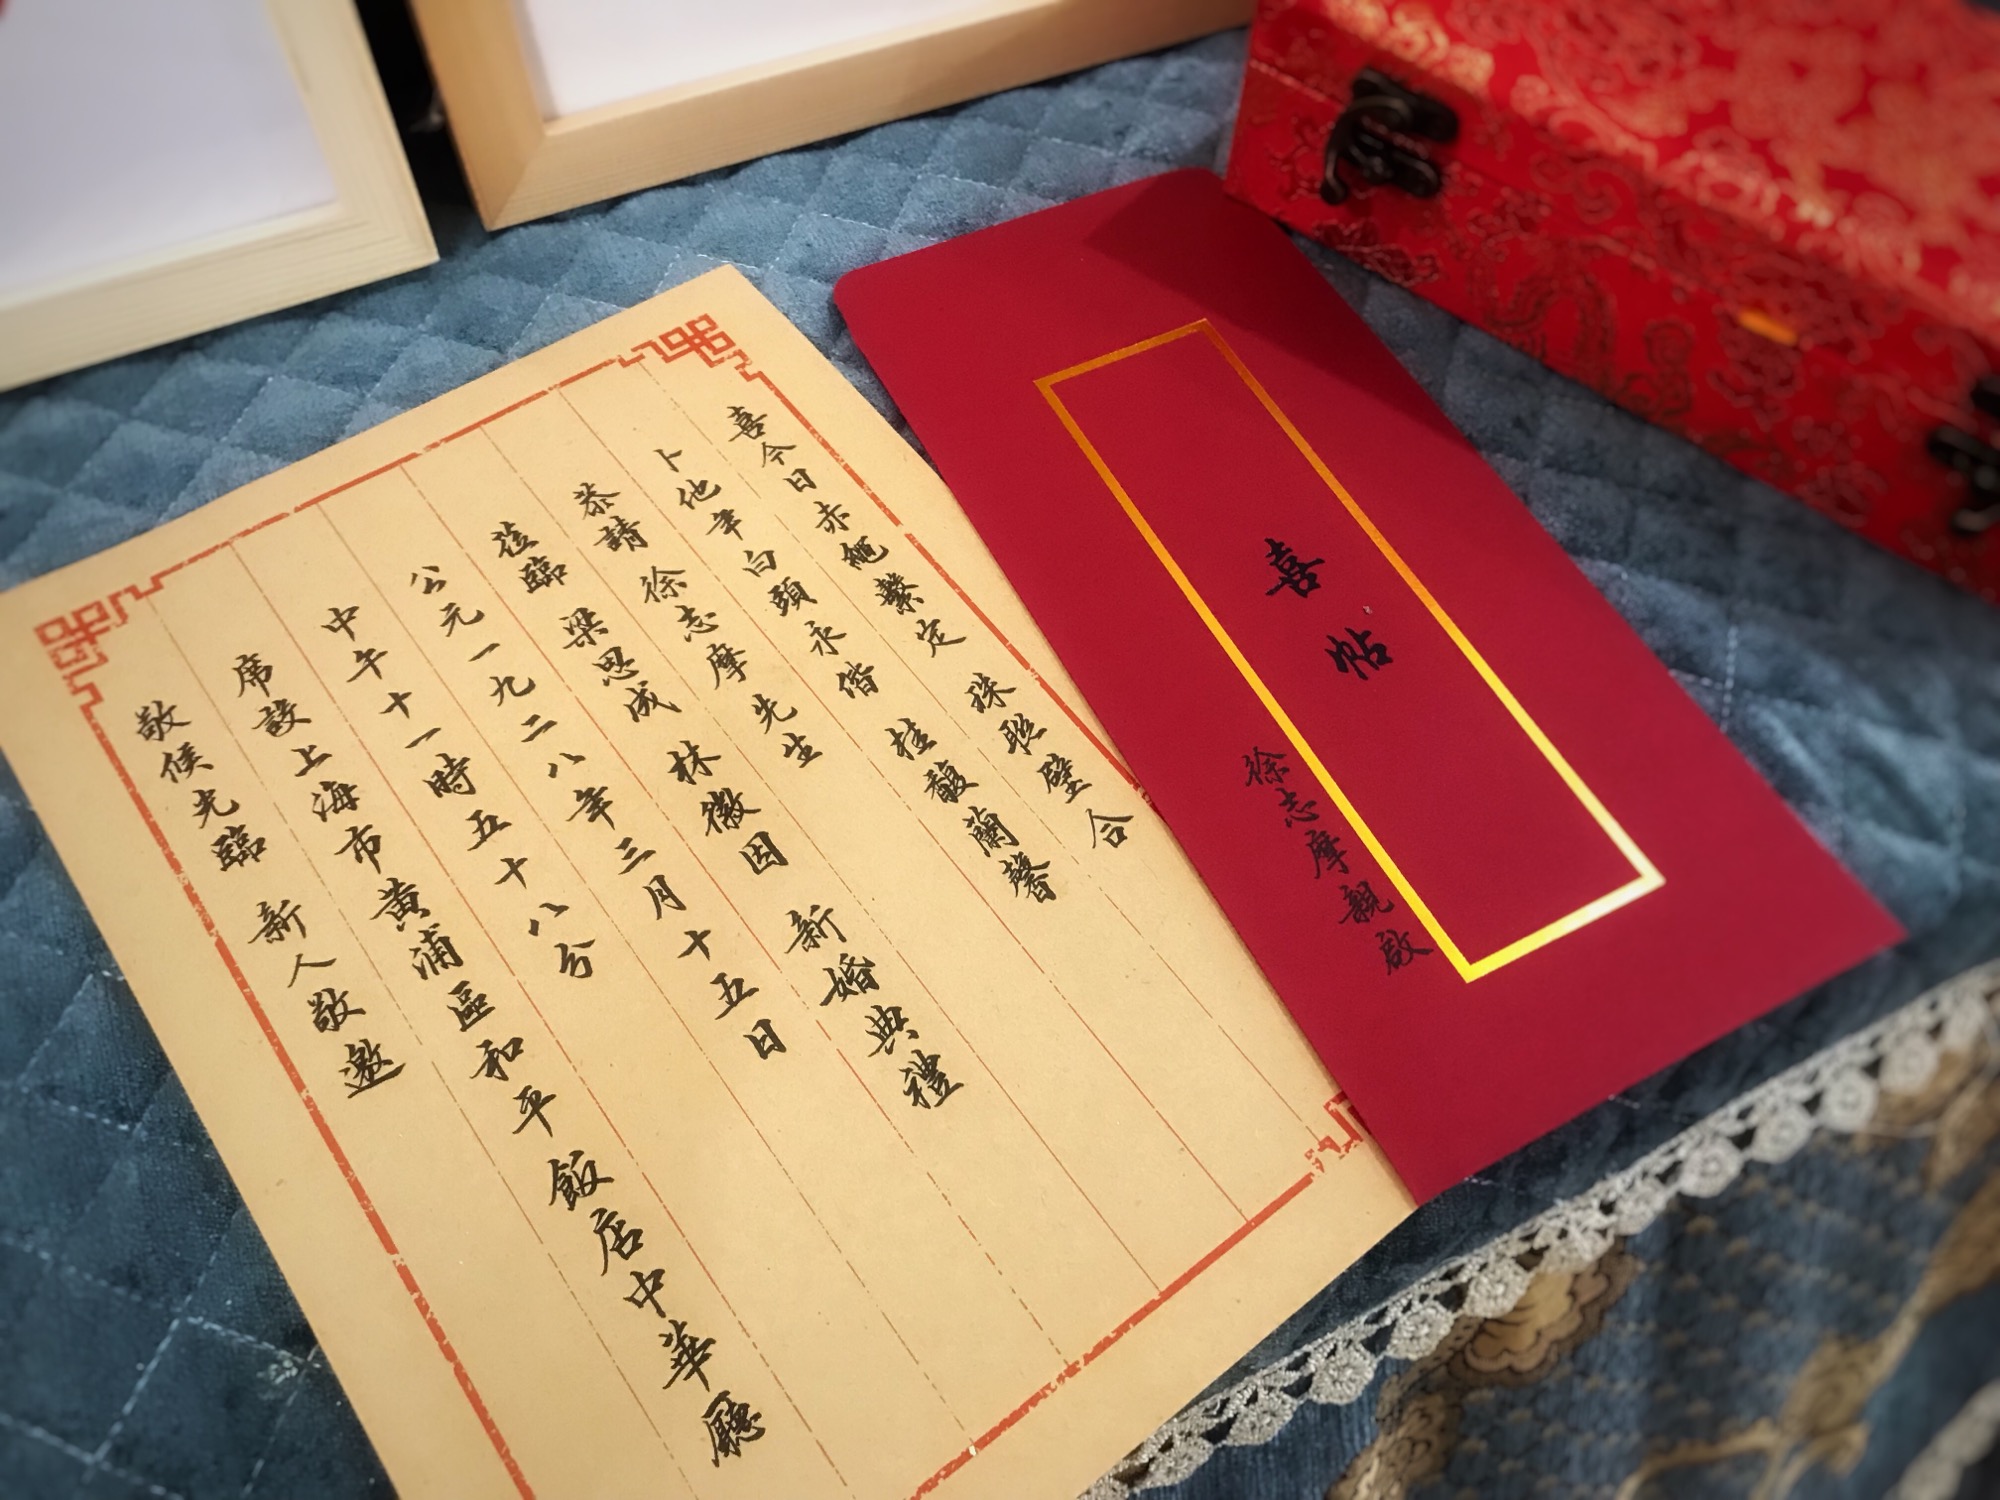 喜今日赤繩繫定 珠聯璧合
卜他年白頭永偕 桂馥蘭馨
恭請 徐志摩 先生
莅臨 梁思成 林徽因 新婚典禮
公元一九二八年三月十五日
中午十一時五十八分
席設上海市黃浦區和平飯店中華廳
敬候光臨 新人敬邀
喜帖
徐志摩親啟